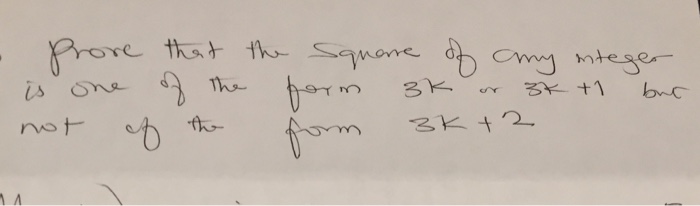 Prove that the square of any integer
is one of the form 3K or 3K +1 but
not of the form 3K + 2